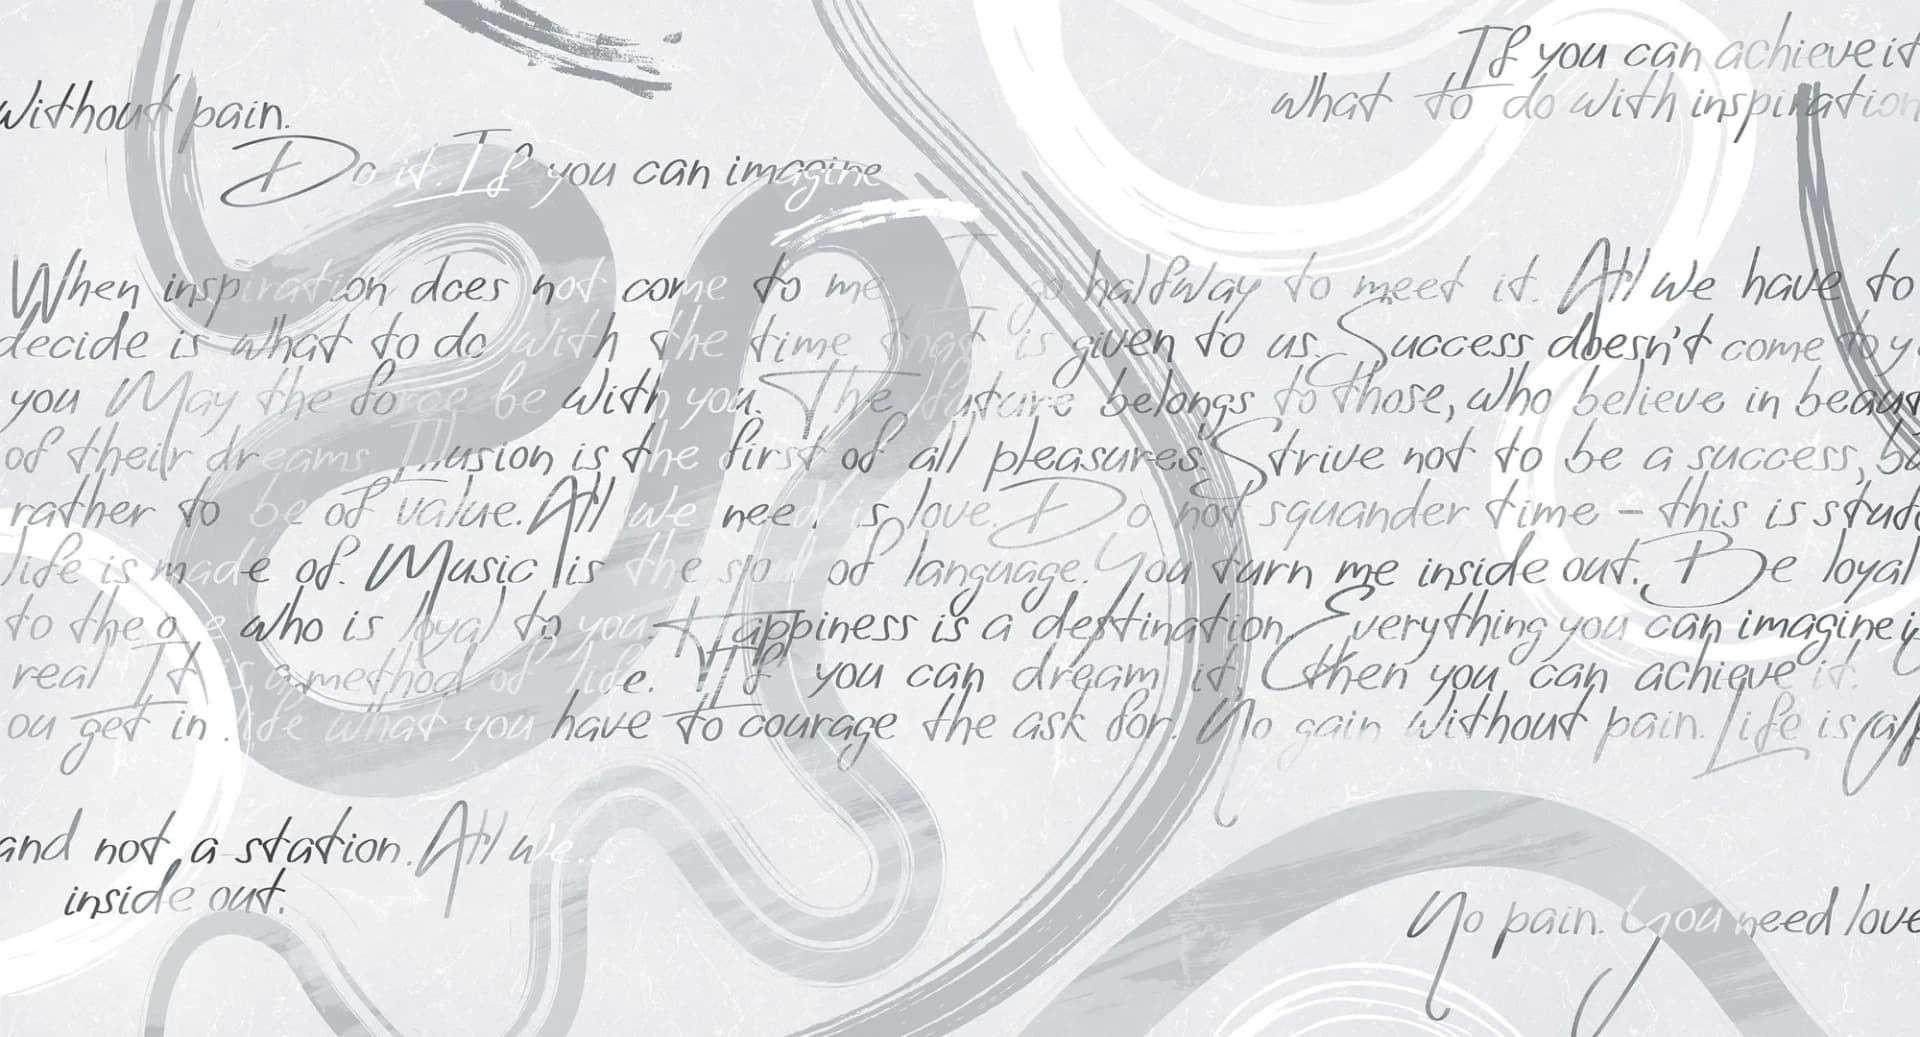 If you can achieve it
without pain.
what to do with inspiration
Do it. If you can imagine
When inspiration does not come to me I go halfway to meet it. All we have to
decide is what to do with the time that is given to us. Success doesn't come to y
you May the force be with you. The future belongs to those, who believe in beaut
of their dreams Illusion is the first of all pleasures. Strive not to be a success, bu
rather to be of value. All we need is love. Do not squander time – this is stuf
life is made of. Music is the soul of language. You turn me inside out. Be loyal
to the one who is loyal to you. Happiness is a destination. Everything you can imagine i
real It is a method of life. If you can dream it, then you can achieve it.
ou get in life what you have to courage the ask for. No gain without pain. Life is
and not a station. All we...
inside out.
No pain. You need love